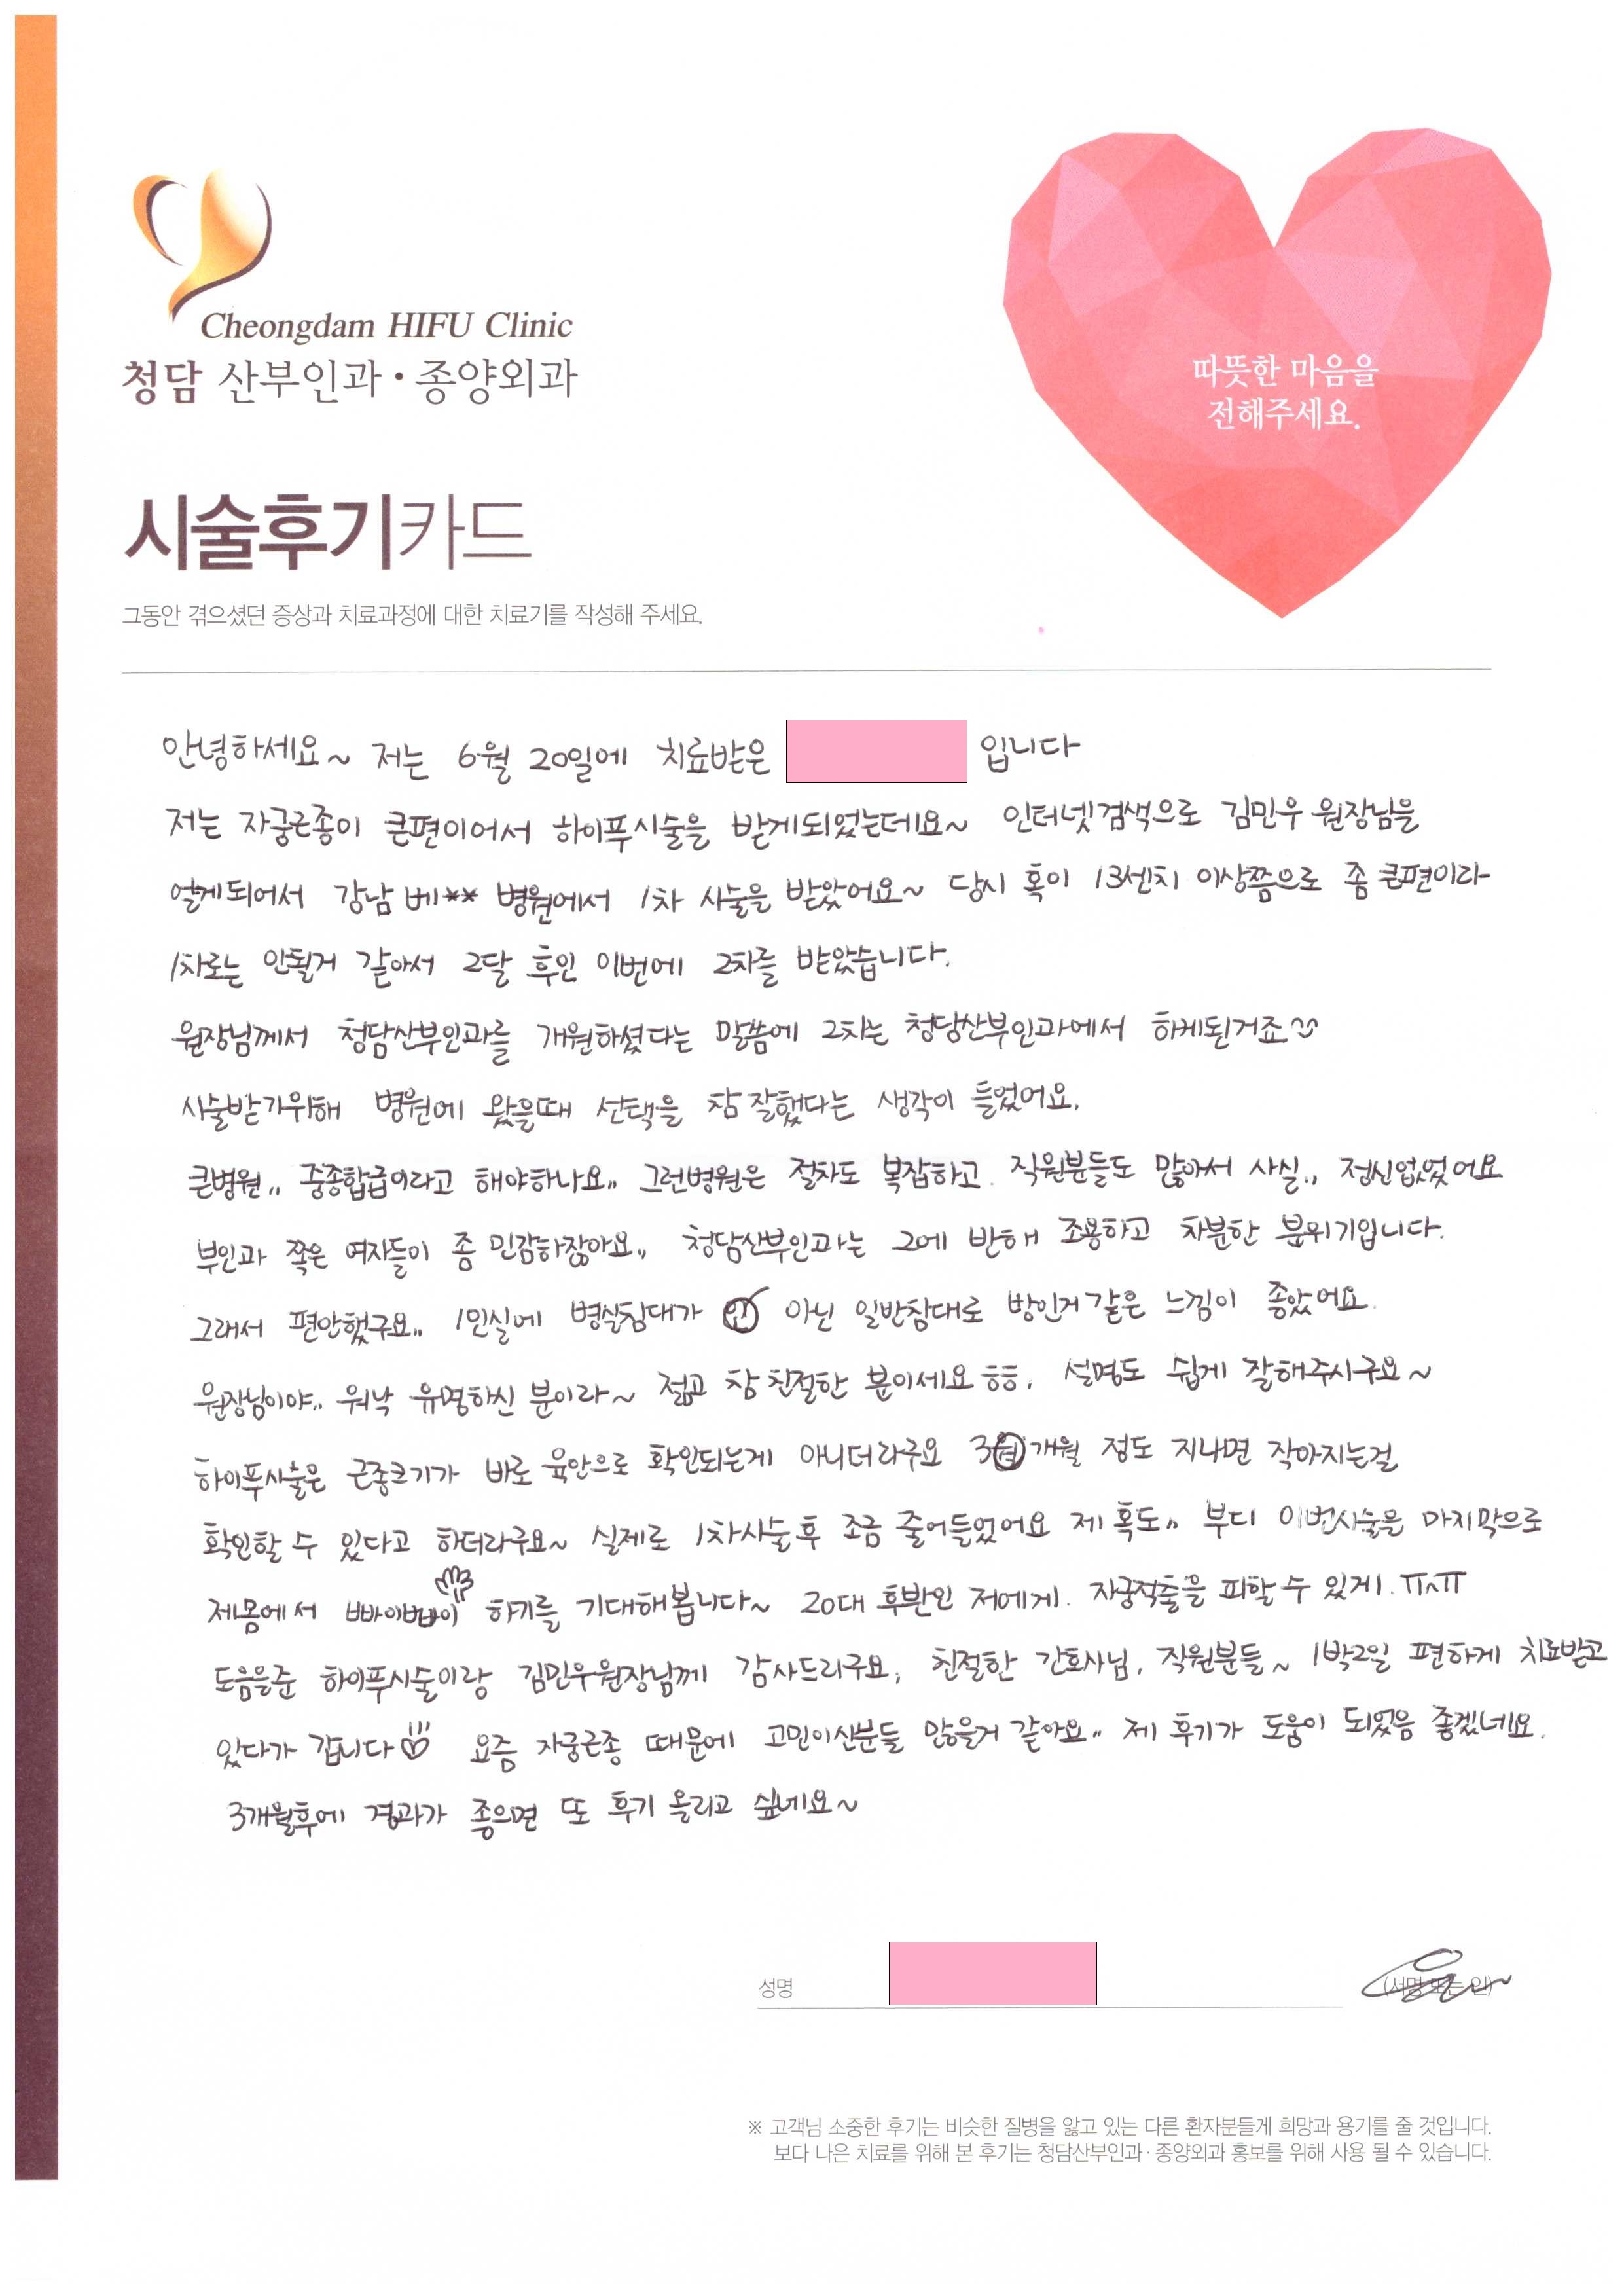 Cheongdam HIFU Clinic
청담 산부인과 · 종양외과
따뜻한 마음을
전해주세요.
시술후기카드
그동안 겪으셨던 증상과 치료과정에 대한 치료기를 작성해 주세요.
안녕하세요~ 저는 6월 20일에 치료받은 입니다
저는 자궁근종이 큰편이어서 하이푸시술을 받게되었는데요~ 인터넷검색으로 김민우 원장님을
알게되어서 강남 베** 병원에서 1차 시술을 받았어요~ 당시 혹이 13센치 이상쯤으로 좀 큰편이라
1차로는 안될거 같아서 2달 후인 이번에 2차를 받았습니다.
원장님께서 청담산부인과를 개원하셨다는 말씀에 2차는 청담산부인과에서 하게된거죠
시술받기위해 병원에 왔을때 선택을 참 잘했다는 생각이 들었어요.
큰병원,, 중종합급이라고 해야하나요,, 그런병원은 절차도 복잡하고. 직원분들도 많아서 사실,, 정신없었어요
부인과 쪽은 여자들이 좀 민감하잖아요,, 청담산부인과는 그에 반해 조용하고 차분한 분위기입니다.
그래서 편안했구요,, 1인실에 병실침대가 아닌 일반침대로 방인거 같은 느낌이 좋았어요.
원장님이야,, 워낙 유명하신 분이라~ 젊고 참 친절한 분이세요 ㅎㅎ. 설명도 쉽게 잘해주시구요~
하이푸시술은 근종크기가 바로 육안으로 확인되는게 아니더라구요 3개월 정도 지나면 작아지는걸
확인할 수 있다고 하더라구요~ 실제로 1차시술 후 조금 줄어들었어요 제 혹도,, 부디 이번시술을 마지막으로
제몸에서 빠이빠이 하기를 기대해봅니다~ 20대 후반인 저에게. 자궁적출을 피할 수 있게. ㅠㅅㅠ
도움을준 하이푸시술이랑 김민우원장님께 감사드리구요, 친절한 간호사님, 직원분들~ 1박2일 편하게 치료받고
있다가 갑니다 요즘 자궁근종 때문에 고민이신분들 많을거 같아요,, 제 후기가 도움이 되었음 좋겠네요.
3개월후에 경과가 좋으면 또 후기 올리고 싶네요~
성명 (서명 또는 인)
※ 고객님 소중한 후기는 비슷한 질병을 앓고 있는 다른 환자분들게 희망과 용기를 줄 것입니다.
보다 나은 치료를 위해 본 후기는 청담산부인과 · 종양외과 홍보를 위해 사용 될 수 있습니다.